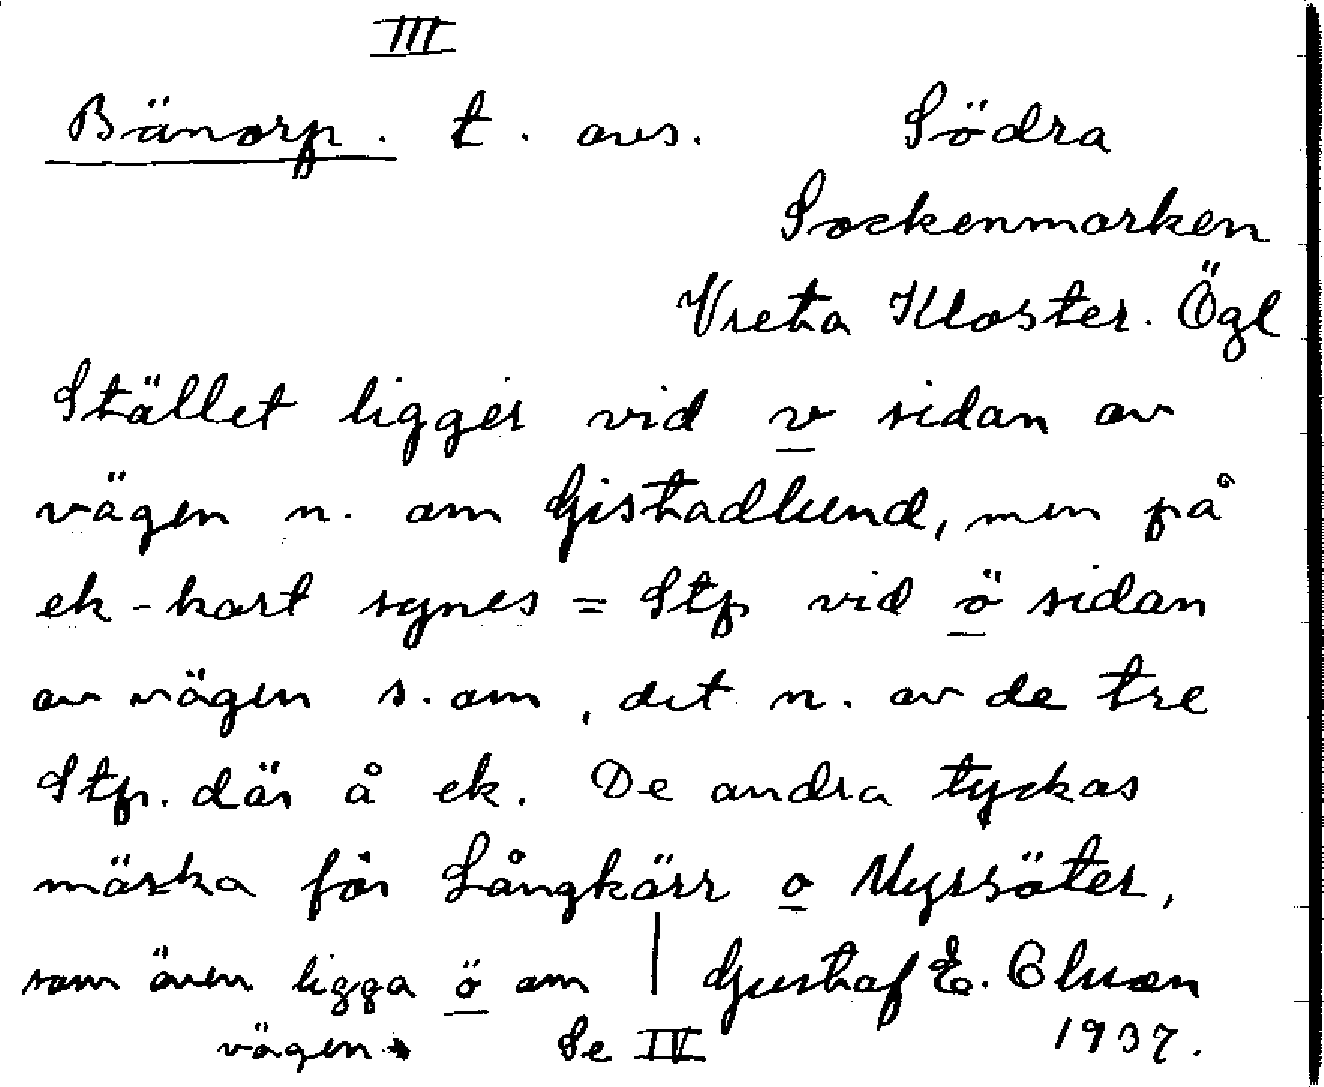 III
Bänorp. t. avs. Södra
Sockenmarken
Vreta Kloster. Ögl
Stället ligger vid v sidan av
vägen n. om Gistadlund, men på
ek-kart synes = Stp vid ö sidan
av vägen s. om, det n. av de tre
Stp. där å ek. De andra tyckas
märka för Långkärr o Myrsäter,
som även ligga ö om
vägen. Se IV
Gustaf E.
1937.